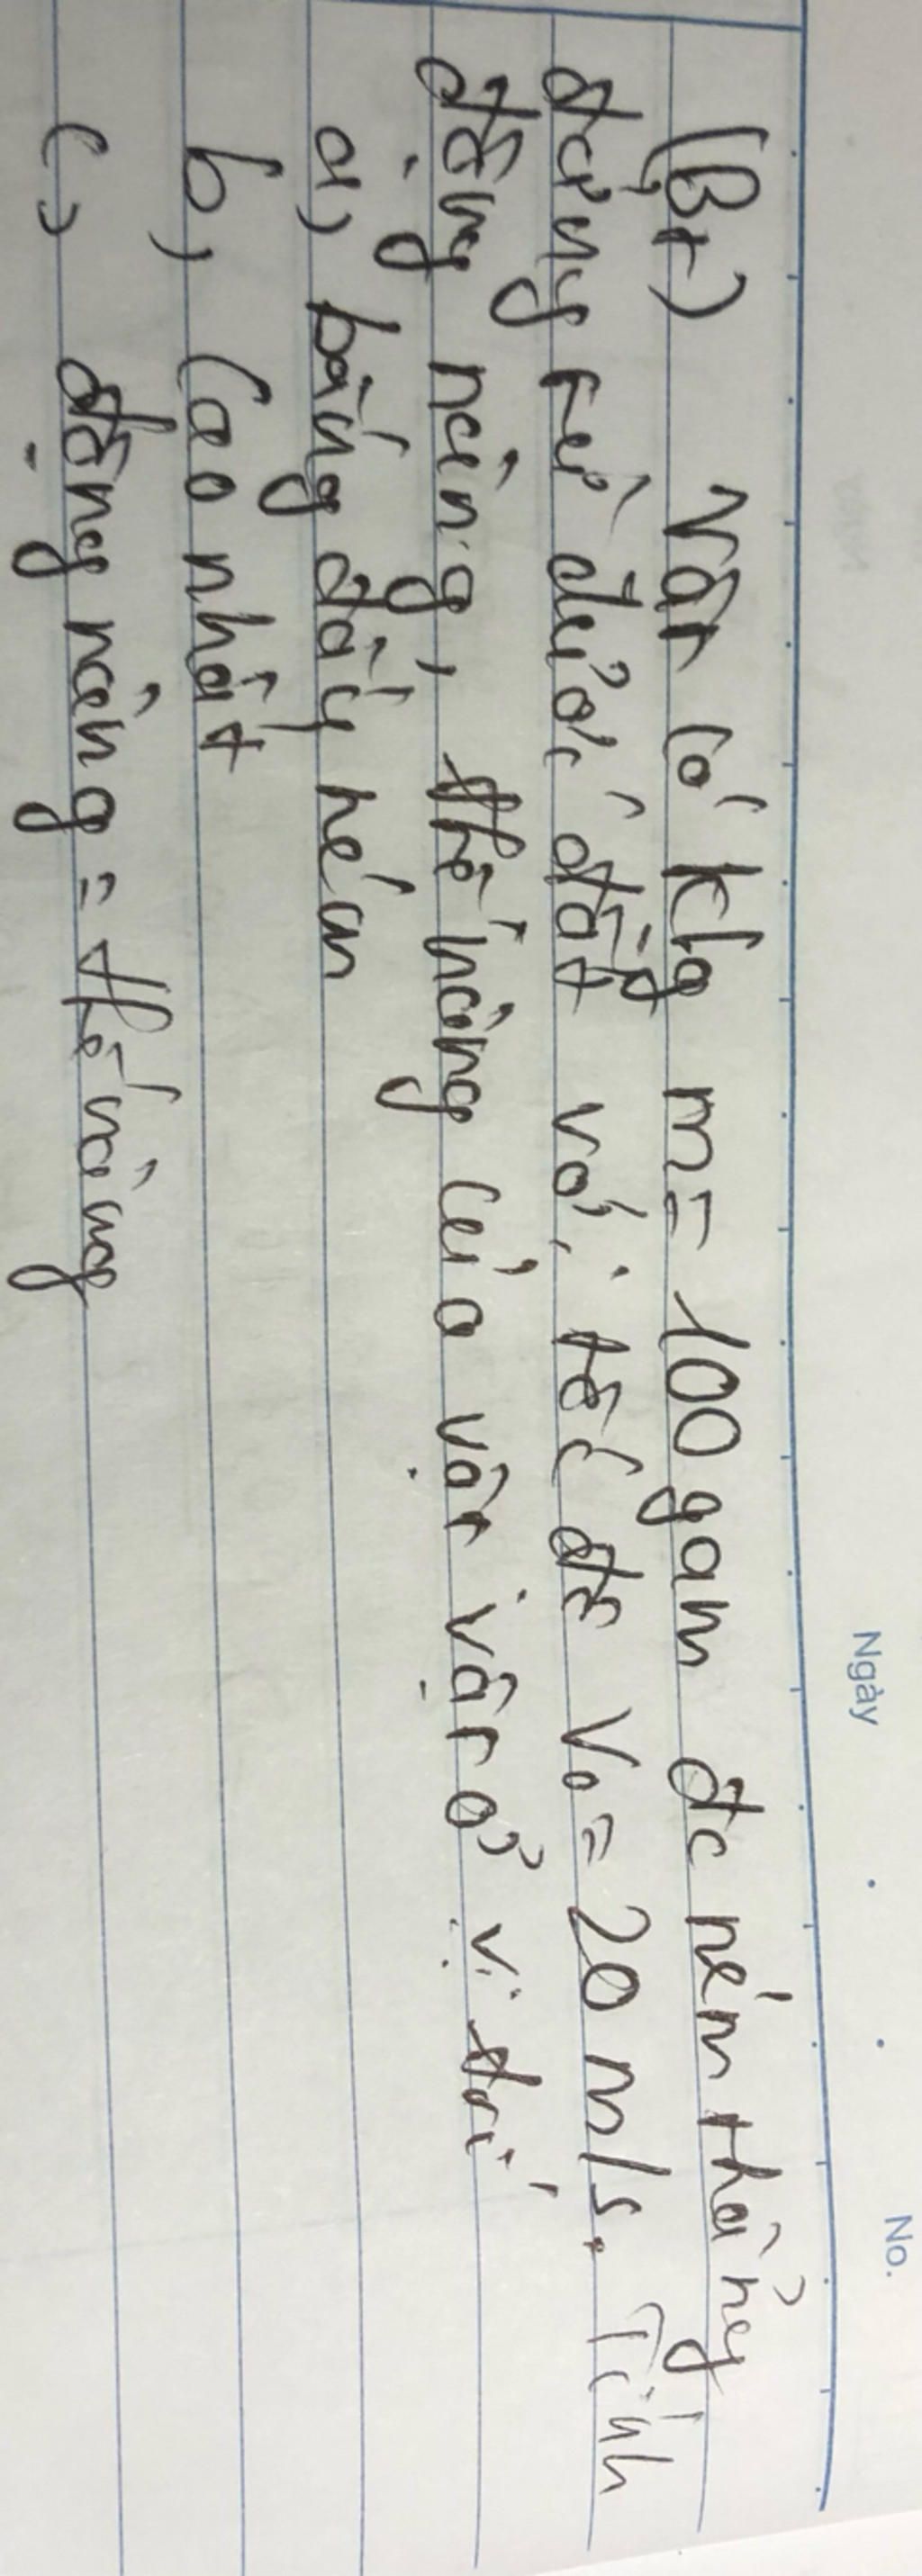 Ngày No.
(Bt) Vật có klg m = 100 gam đc ném thẳng
đứng từ dưới đất với tốc độ V₀ = 20 m/s. Tính
động năng, thế năng của vật vật ở vị trí
a, bắng đầy ném
b, Cao nhất
c, động năng = thế năng